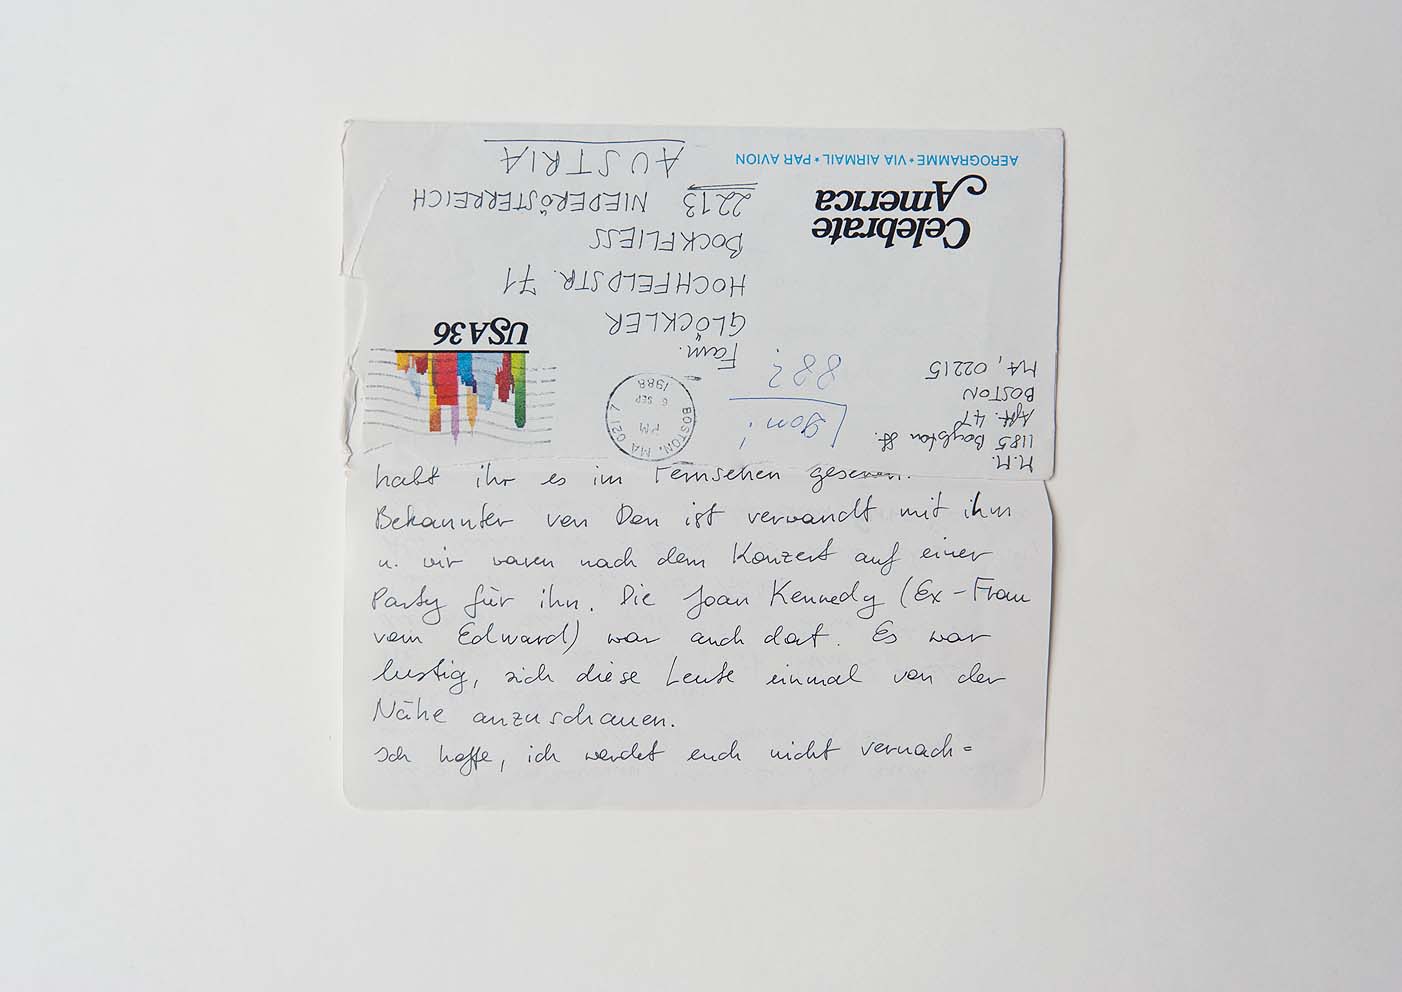 AEROGRAMME • VIA AIRMAIL • PAR AVION
Celebrate
America
USA36
M.M.
1185 Boylston St.
Apt. 47
BOSTON
MA, 02215
BOSTON, MA 0217
PM
6 SEP
1988
88?
Fam.
GLÖCKLER
HOCHFELDSTR. 71
BOCKFLIESS
2213 NIEDERÖSTERREICH
AUSTRIA
habt ihr es im Fernsehen gesehen.
Bekannter von Dan ist verwandt mit ihm
u. wir waren nach dem Konzert auf einer
Party für ihn. Die Joan Kennedy (Ex-Frau
vom Edward) war auch dort. Es war
lustig, sich diese Leute einmal von der
Nähe anzuschauen.
Ich hoffe, ich werdet euch nicht vernach=